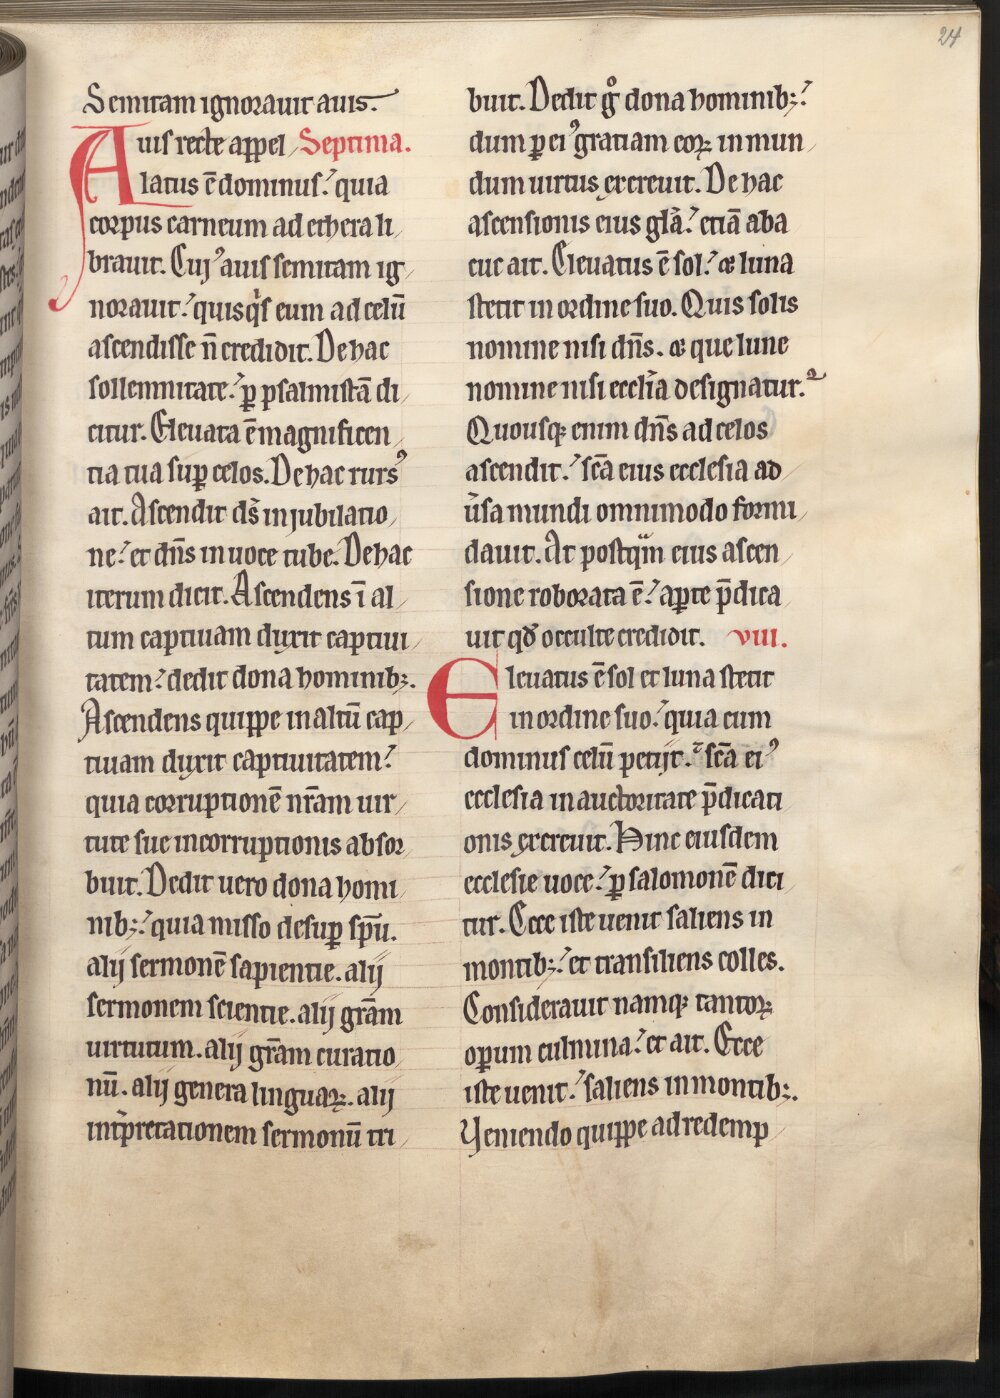 24
Semitam ignorauit auis.
Auis recte appel Septima.
latus ē dominus? quia
corpus carneum ad ethera li
brauit. Cuiꝰ auis semitam ig
norauit? quisqͥs eum ad celū
ascendisse n̄ credidit. De hac
sollemnitate? ꝑ psalmistā di
citur. Eleuata ē magnificen
tia tua suꝑ celos. De hac rursꝰ
ait. Ascendit ds̄ in jubilatio
ne? et dn̄s in uoce tube. De hac
iterum dicit. Ascendens ī al
tum captiuam duxit captiui
tatem? dedit dona hominibꝫ.
Ascendens quippe in altū cap
tiuam duxit captiuitatem?
quia corruptionē nr̄am uir
tute sue incorruptionis absor
buit. Dedit uero dona homi
nibꝫ? quia misso desuꝑ sp̄u.
alij sermonē sapientie. alij
sermonem scientie. alij gr̄am
uirtutum. alij gr̄am curatio
nū. alij genera linguaꝝ. alij
int̄pretationem sermonū tri
buit. Dedit gͦ dona hominibꝫ?
dum ꝑ eiꝰ gratiam eoꝝ in mun
dum uirtus excreuit. De hac
ascensionis eius glā? etiā aba
cuc ait. Eleuatus ē sol? & luna
stetit in ordine suo. Quis solis
nomine nisi dn̄s. & que lune
nomine nisi eccl̄ia designatur?
Quousqꝫ enim dn̄s ad celos
ascendit? sc̄a eius ecclesia ad
ūsa mundi omnimodo formi
dauit. At postqᷓm eius ascen
sione roborata ē? aꝑte p̄dica
uit qd̄ occulte credidit. viii.
Eleuatus ē sol et luna stetit
in ordine suo? quia cum
dominus celū petijt? sc̄a eiꝰ
ecclesia in auctoritate p̄dicati
onis excreuit. Hinc eiusdem
ecclesie uoce? ꝑ salomonē dici
tur. Ecce iste uenit saliens in
montibꝫ? et transiliens colles.
Considerauit namqꝫ tantoꝝ
oꝑum culmina? et ait. Ecce
iste uenit? saliens in montibꝫ.
Veniendo quippe ad redemp